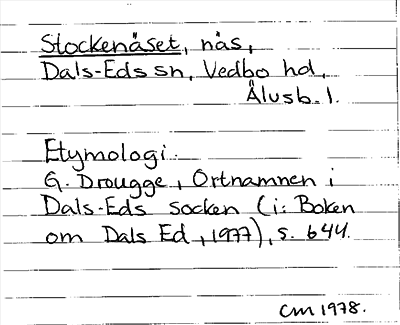 Stockenäset, näs,
Dals-Eds sn, Vedbo hd,
Älvsb. l.
Etymologi:
G. Drougge, Ortnamnen i
Dals-Eds socken (i: Boken
om Dals Ed, 1977), s. 644.
CM 1978.